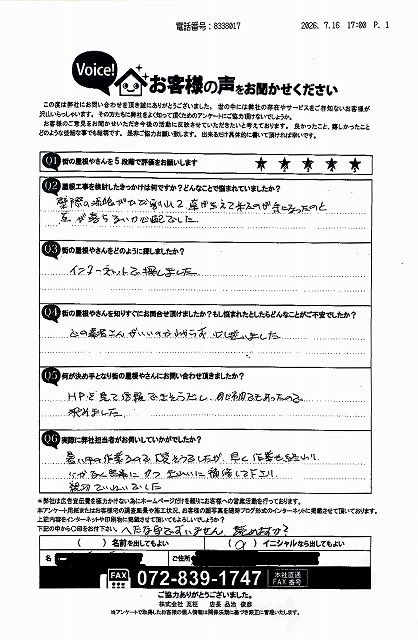 電話番号：8338017 2026. 7.16 17:00 P. 1
Voice!
お客様の声をお聞かせください
この度は弊社にお問い合わせを頂き誠にありがとうございました。世の中には弊社の存在やサービスをご存知ないお客様が
沢山いらっしゃいます。その方たちに弊社をよく知って頂くためのアンケートにご協力頂けないでしょうか。
お客様のご意見をお聞かせいただき今後の活動に反映させていただきたいと考えております。良かったこと、嬉しかったこと
どのような些細な事でも結構です。是非ご協力お願い致します。出来るだけ具体的に書いて頂ければ幸いです。
Q1 街の屋根やさんを5段階で評価をお願いします ★ ★ ★ ★ ★
Q2 屋根工事を検討したきっかけは何ですか？どんなことで悩まれていましたか？
壁際の漆喰がひび割れして草が生えて来たのが気になったのと
瓦が落ちないか心配でした
Q3 街の屋根やさんをどのように探しましたか？
インターネットで探しました
Q4 街の屋根やさんを知りすぐにお問合せ頂けましたか？もし悩まれたとしたらどんなことがご不安でしたか？
どの業者さんがいいのかわからず少し迷いました
Q5 何が決め手となり街の屋根やさんにお問い合わせ頂きましたか？
HPを見て信頼できそうだし、
決めました
Q6 実際に弊社担当者がお伺いしていかがでしたか？
暑い中の作業なので大変そうでしたが、早く作業も終わり
かつ きれいに補修して下さり
親切でていねいでした
※弊社は広告宣伝費を極力かけない為にホームページだけを頼りにお客様への営業活動を行っております。
本アンケート用紙またはお客様宅の調査風景や施工状況、お客様の顔写真を随時ブログ形式のインターネットに掲載させて頂いております。
上記内容をインターネットや印刷物に掲載させて頂いてもよろしいでしょうか？
下記の中から〇印をお付け下さい。 へたな字ですいません 読めますか？
（ ）名前を出してもよい （〇）イニシャルなら出してもよい
名 ご住所
FAX 072-839-1747 本社直通 FAX 番号
ご協力ありがとうございました。
株式会社 瓦征 店長 品治 俊彦
当アンケートで取得したお客様の個人情報は関係法規に基づき厳正に管理いたします。